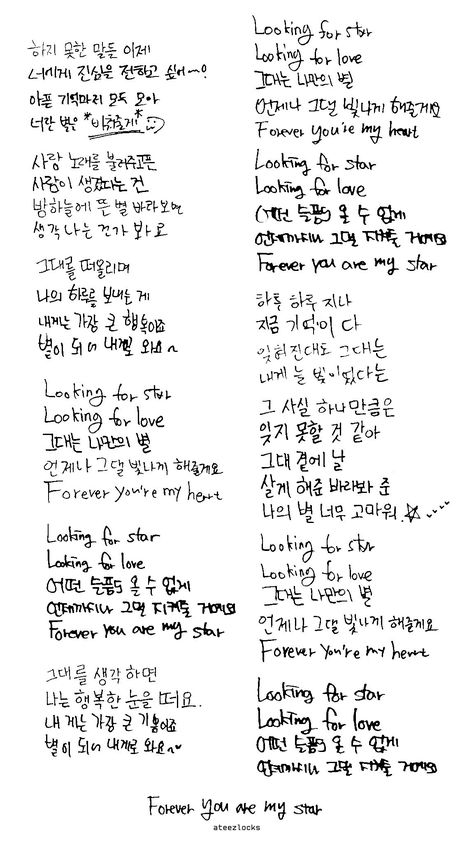 하지 못한 말들 이제
너에게 진심을 전하고 싶어~!
아픈 기억마저 모두 모아
너란 별을 *비춰줄게*
사랑 노래를 불러주고픈
사람이 생겼다는 건
밤하늘에 뜬 별 바라보면
생각나는 건가 봐요
그대를 떠올리며
나의 하루를 보내는 게
내게는 가장 큰 행복이죠
별이 되어 내게로 와요~
Looking for star
Looking for love
그대는 나만의 별
언제나 그댈 빛나게 해줄게요
Forever you're my heart
Looking for star
Looking for love
어떤 슬픔도 올 수 없게
언제까지나 그댈 지켜줄 거예요
Forever you are my star
그대를 생각하면
나는 행복한 눈을 떠요.
내게는 가장 큰 기쁨이죠
별이 되어 내게로 와요~
Looking for star
Looking for love
그대는 나만의 별
언제나 그댈 빛나게 해줄게요
Forever you're my heart
Looking for star
Looking for love
어떤 슬픔도 올 수 없게
언제까지나 그댈 지켜줄 거예요
Forever you are my star
하루 하루 지나
지금 기억이 다
잊혀진대도 그대는
내게 늘 빛이었다는
그 사실 하나만큼은
잊지 못할 것 같아
그대 곁에 날
살게 해준 바라봐 준
나의 별 너무 고마워.
Looking for star
Looking for love
그대는 나만의 별
언제나 그댈 빛나게 해줄게요
Forever you're my heart
Looking for star
Looking for love
어떤 슬픔도 올 수 없게
언제까지나 그댈 지켜줄 거예요
Forever you are my star
ateezlocks